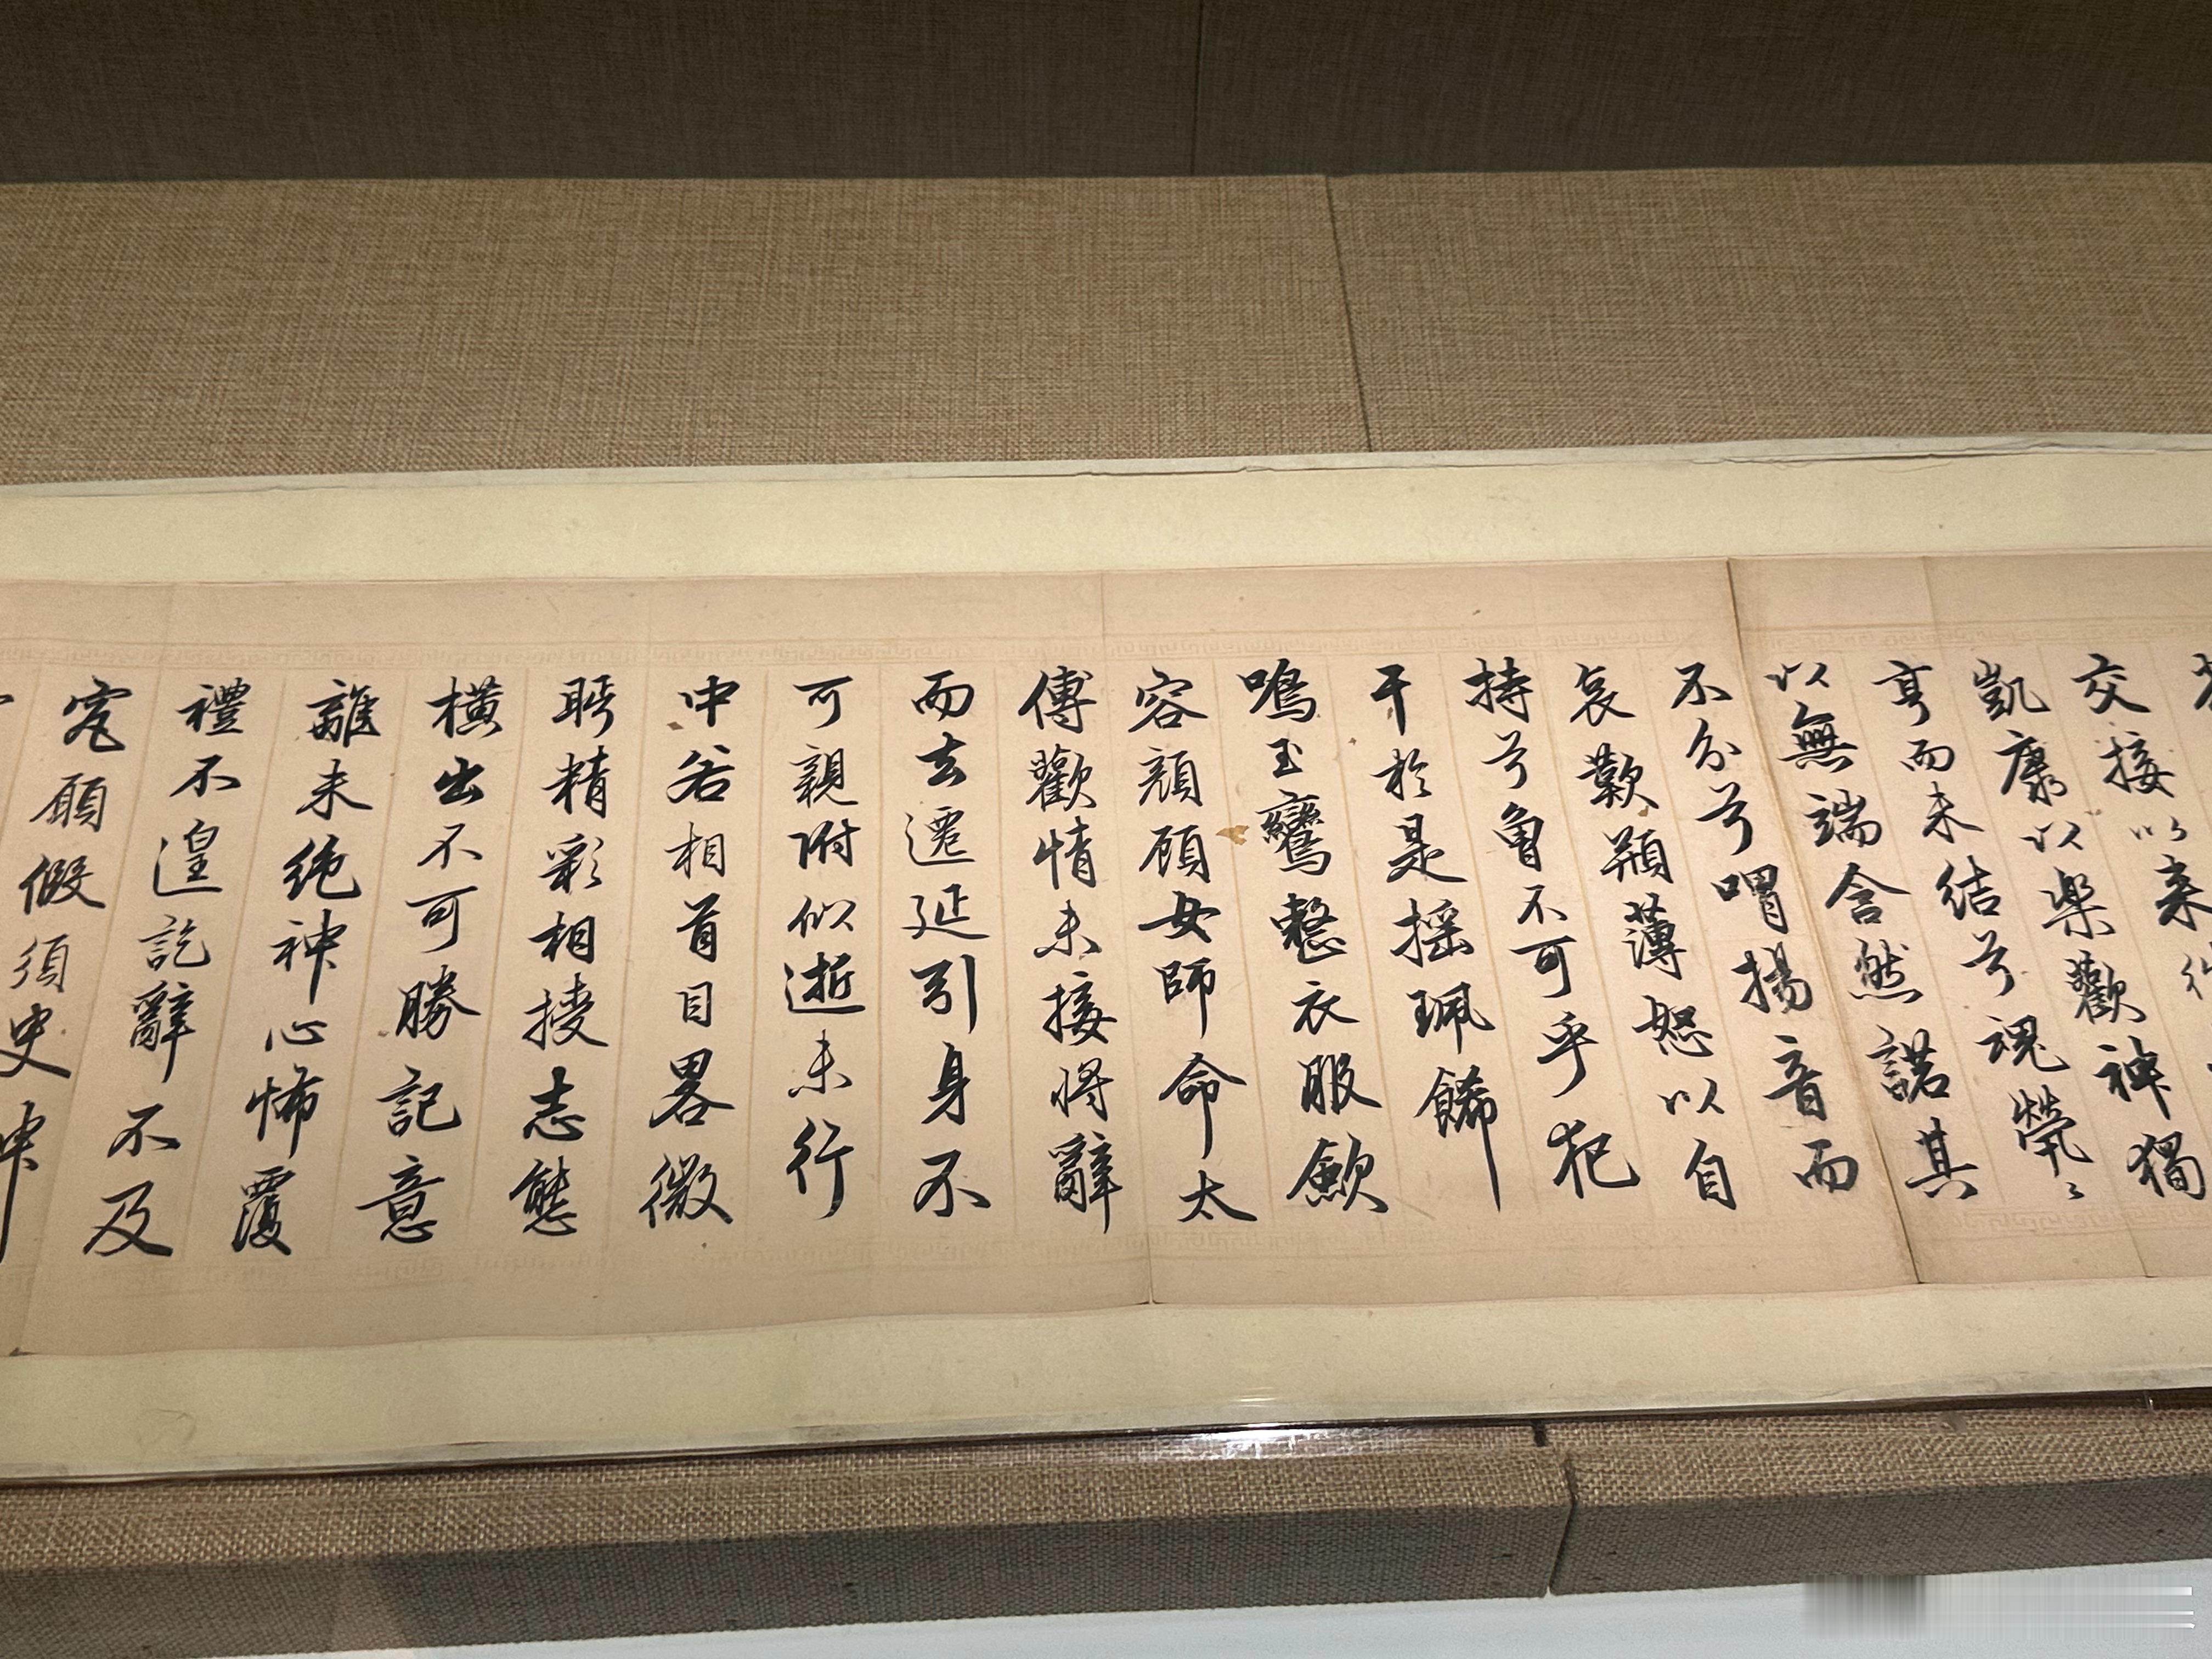 交接以来往
凱康以樂歡神獨
亨而未结兮魂煢〻
以無端含然諾其
不分兮喟揚音而
哀歎頩薄怒以自
持兮曾不可乎犯
干於是摇珮飾
鳴玉鸞整衣服歛
容顔顧女師命太
傅歡情未接將辭
而去遷延引身不
可親附似逝未行
中若相首目畧微
眄精彩相授志態
横出不可勝記意
離未绝神心怖覆
禮不遑訖辭不及
究願假須臾神